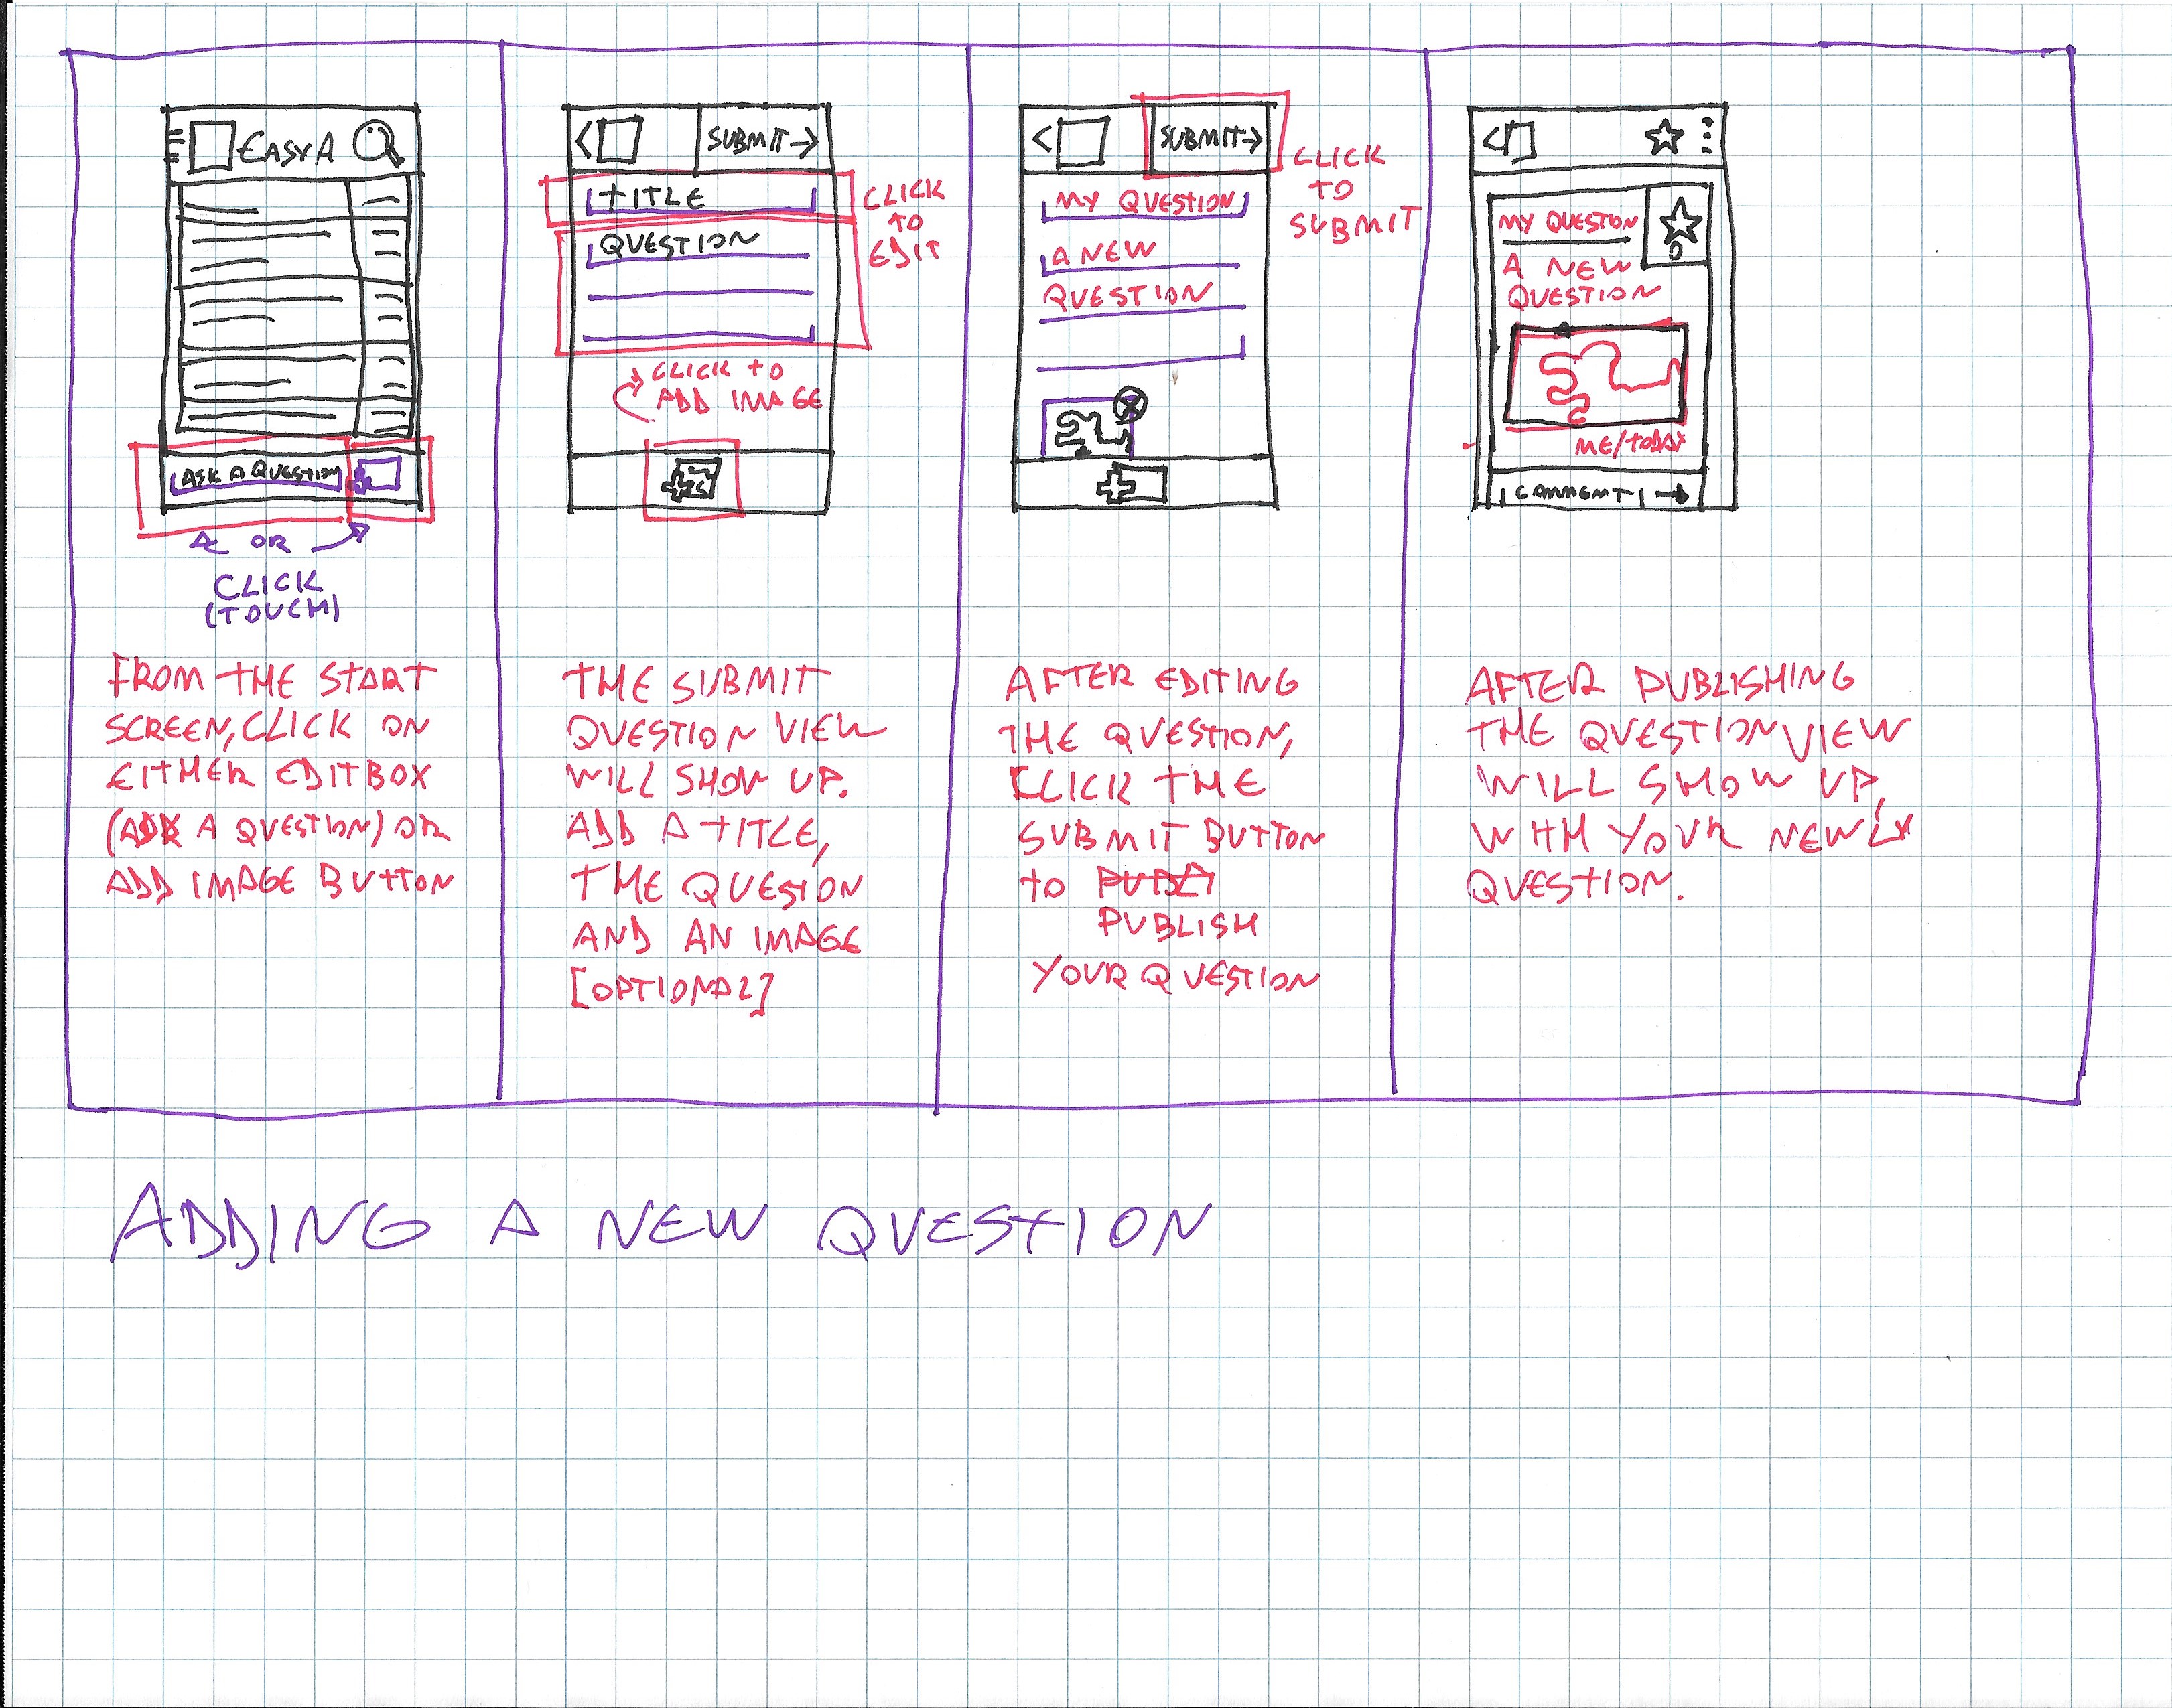 EASYA
ASK A QUESTION
OR
CLICK
(TOUCH)
FROM THE START
SCREEN, CLICK ON
EITHER EDITBOX
(ASK A QUESTION) OR
ADD IMAGE BUTTON
SUBMIT→
TITLE
QUESTION
CLICK
TO
EDIT
CLICK TO
ADD IMAGE
THE SUBMIT
QUESTION VIEW
WILL SHOW UP.
ADD A TITLE,
THE QUESION
AND AN IMAGE
[OPTIONAL]
SUBMIT→
CLICK
TO
SUBMIT
MY QUESTION
A NEW
QUESTION
AFTER EDITING
THE QUESTION,
CLICK THE
SUBMIT BUTTON
TO
PUBLISH
YOUR QUESTION
MY QUESTION
0
A NEW
QUESTION
ME/TODAY
COMMENT
AFTER PUBLISHING
THE QUESTION VIEW
WILL SHOW UP,
WITH YOUR NEWLY
QUESTION.
ADDING A NEW QUESTION